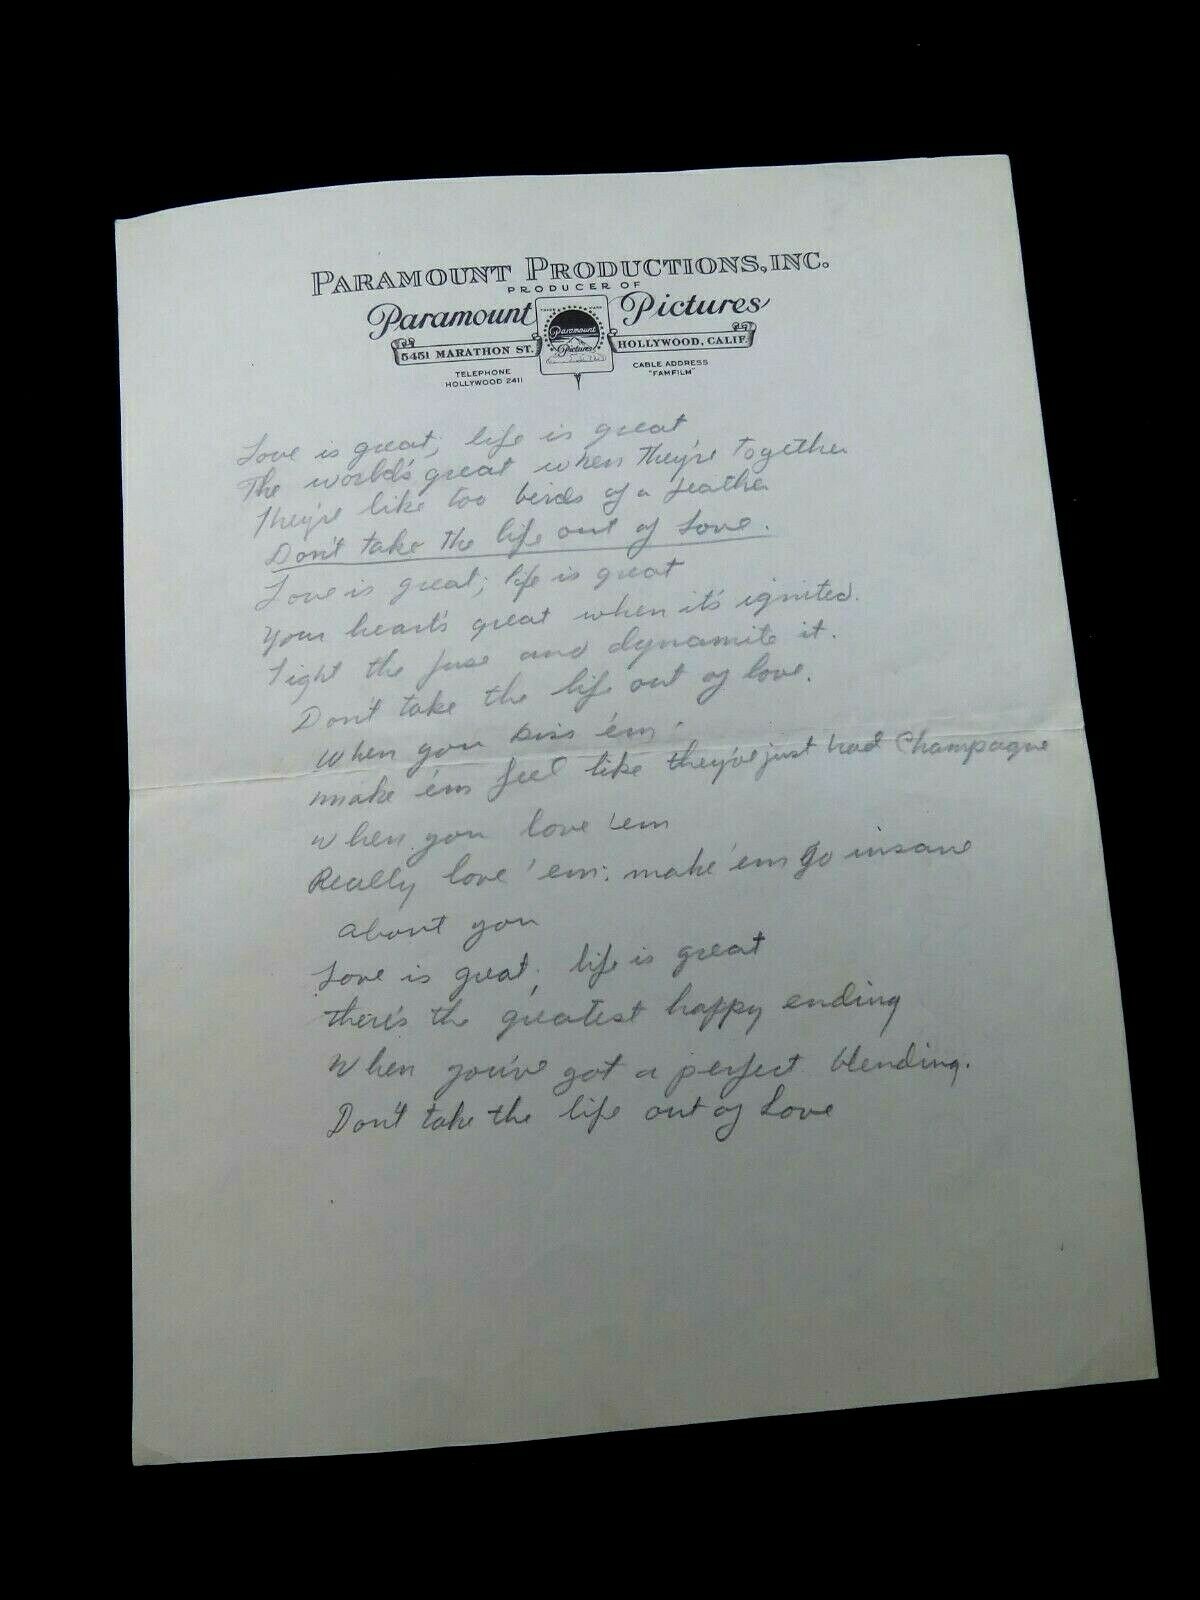 PARAMOUNT PRODUCTIONS, INC.
PRODUCER OF
Paramount Pictures
Paramount Pictures
5451 MARATHON ST. HOLLYWOOD, CALIF.
TELEPHONE
HOLLYWOOD 2411
CABLE ADDRESS
"FAMFILM"
Love is great, life is great
The world's great when they're together
They're like too birds of a feather
Don't take the life out of Love.
Love is great; life is great
Your heart's great when it's ignited.
Light the fuse and dynamite it.
Don't take the life out of love.
When you kiss 'em
make 'em feel like they've just had Champagne
When you love 'em
Really love 'em. make 'em go insane
about you
Love is great, life is great
There's the greatest happy ending
When you've got a perfect blending.
Don't take the life out of Love